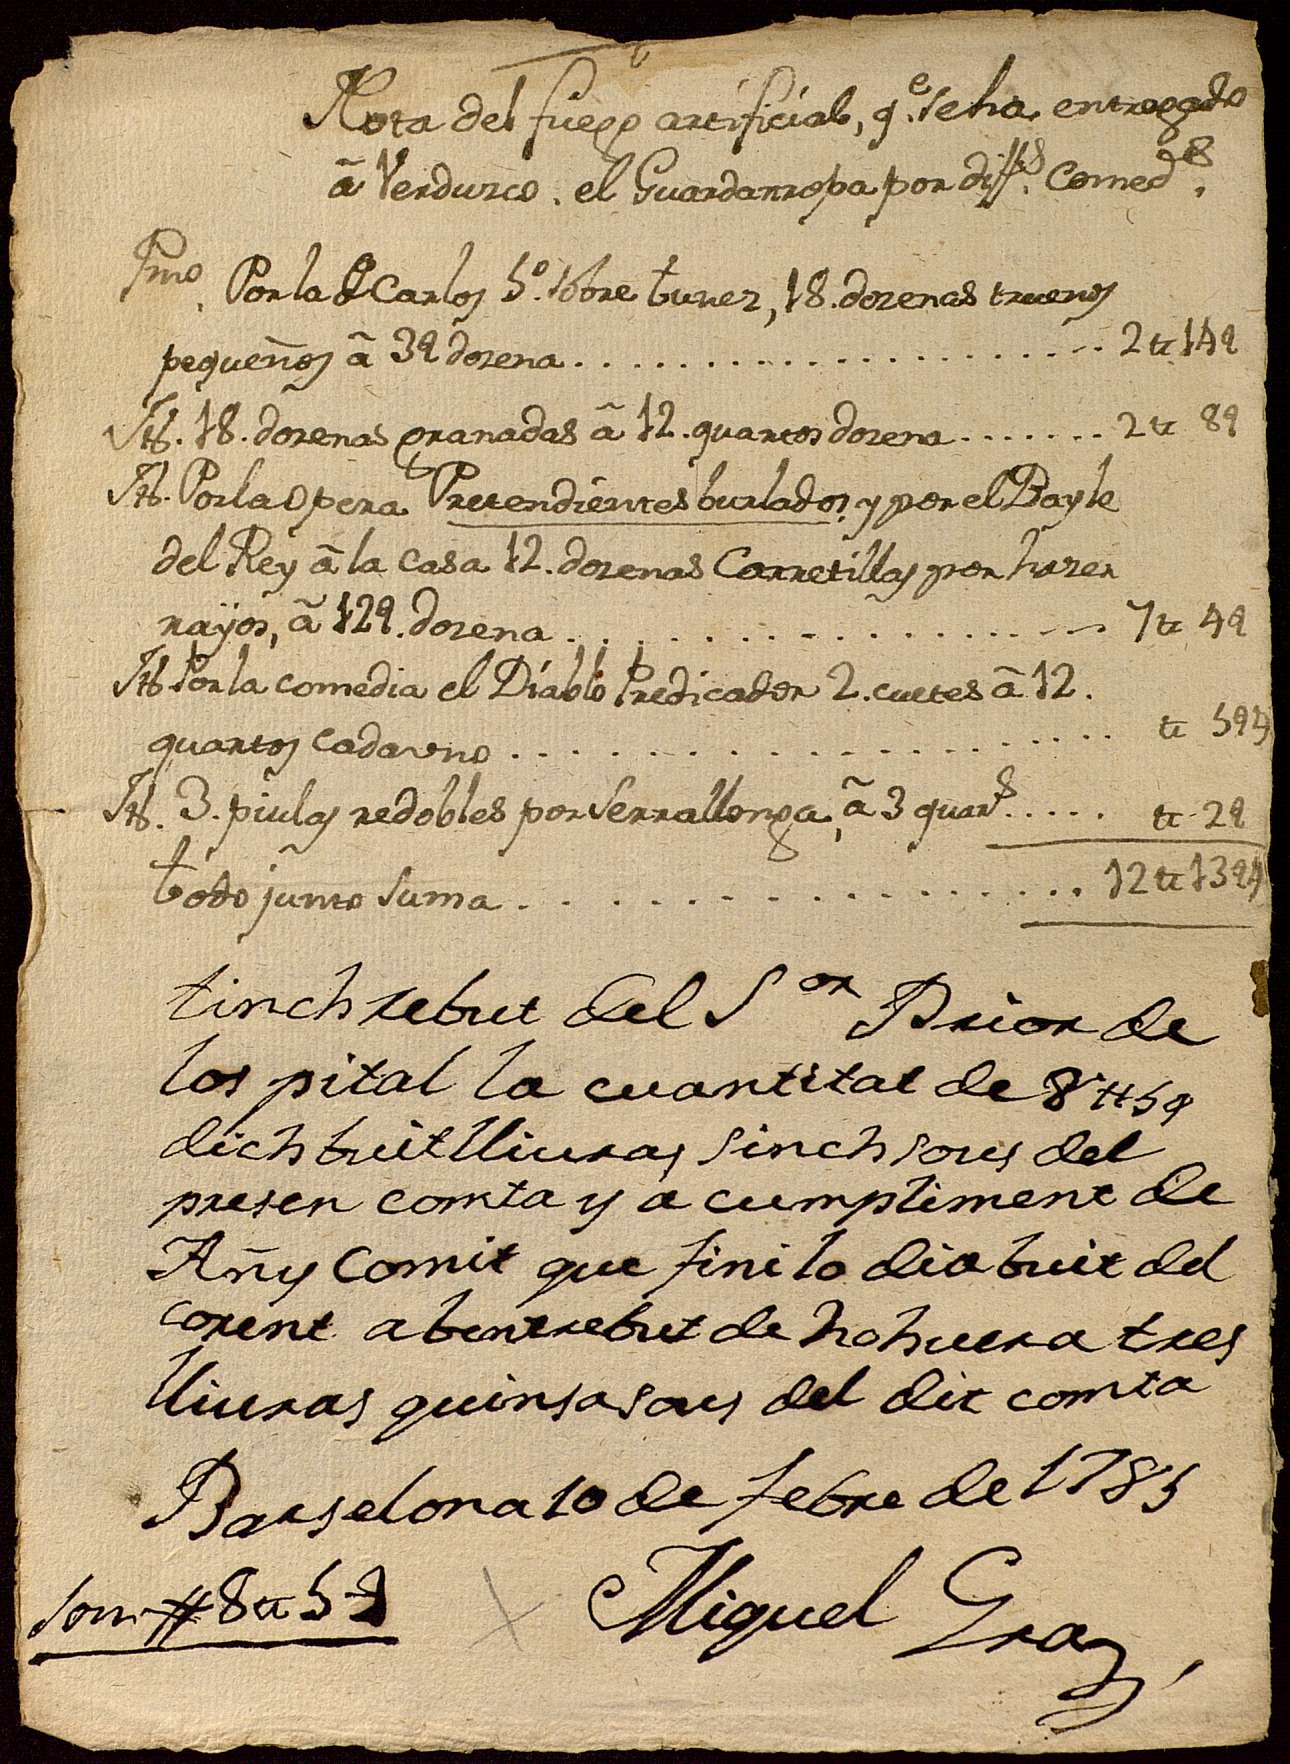 Nota del fuego artificial, q.e se ha entregado
â Verdusco. el Guardarropa por diff.s Comed.s
Pmo. Por la d Carlos 5º. sobre tunez, 18. dozenas truenos
pequeños â 3 s dozena . . . . . . . . . . 2 ₶ 14 s
Itt. 18. dozenas granadas â 12. quartos dozena . . . . . . . 2 ₶ 8 s
Itt. Por la Opera Pretendientes burlados, y por el Bayle
del Rey â la casa 12. dozenas Carretillas por hazer
rayos, â 12 s. dozena . . . . . . . . . . 7 ₶ 4 s
Itt Por la comedia el Diablo Predicador 2. cuetes â 12.
quartos cada uno . . . . . . . . . . ₶ 5 s 4
Itt. 3. piulas redobles por Serrallonga, â 3 quar.s . . . . . ₶ 2 s
todo junto suma . . . . . . . . . . 12 ₶ 13 s 4
tinch rebut del S.or Prior de
los pital la cuantitat de 8 ₶ 5 s
dich buit lliuras sinch sous del
presen comta y a cumpliment de
Añy Comit que fini lo dia buit del
corent abent rebut de
lliuras quinsa sous del dit comta
Barselona 10 de febre de 1785
son # 8 ₶ 5 s
Miguel Gra